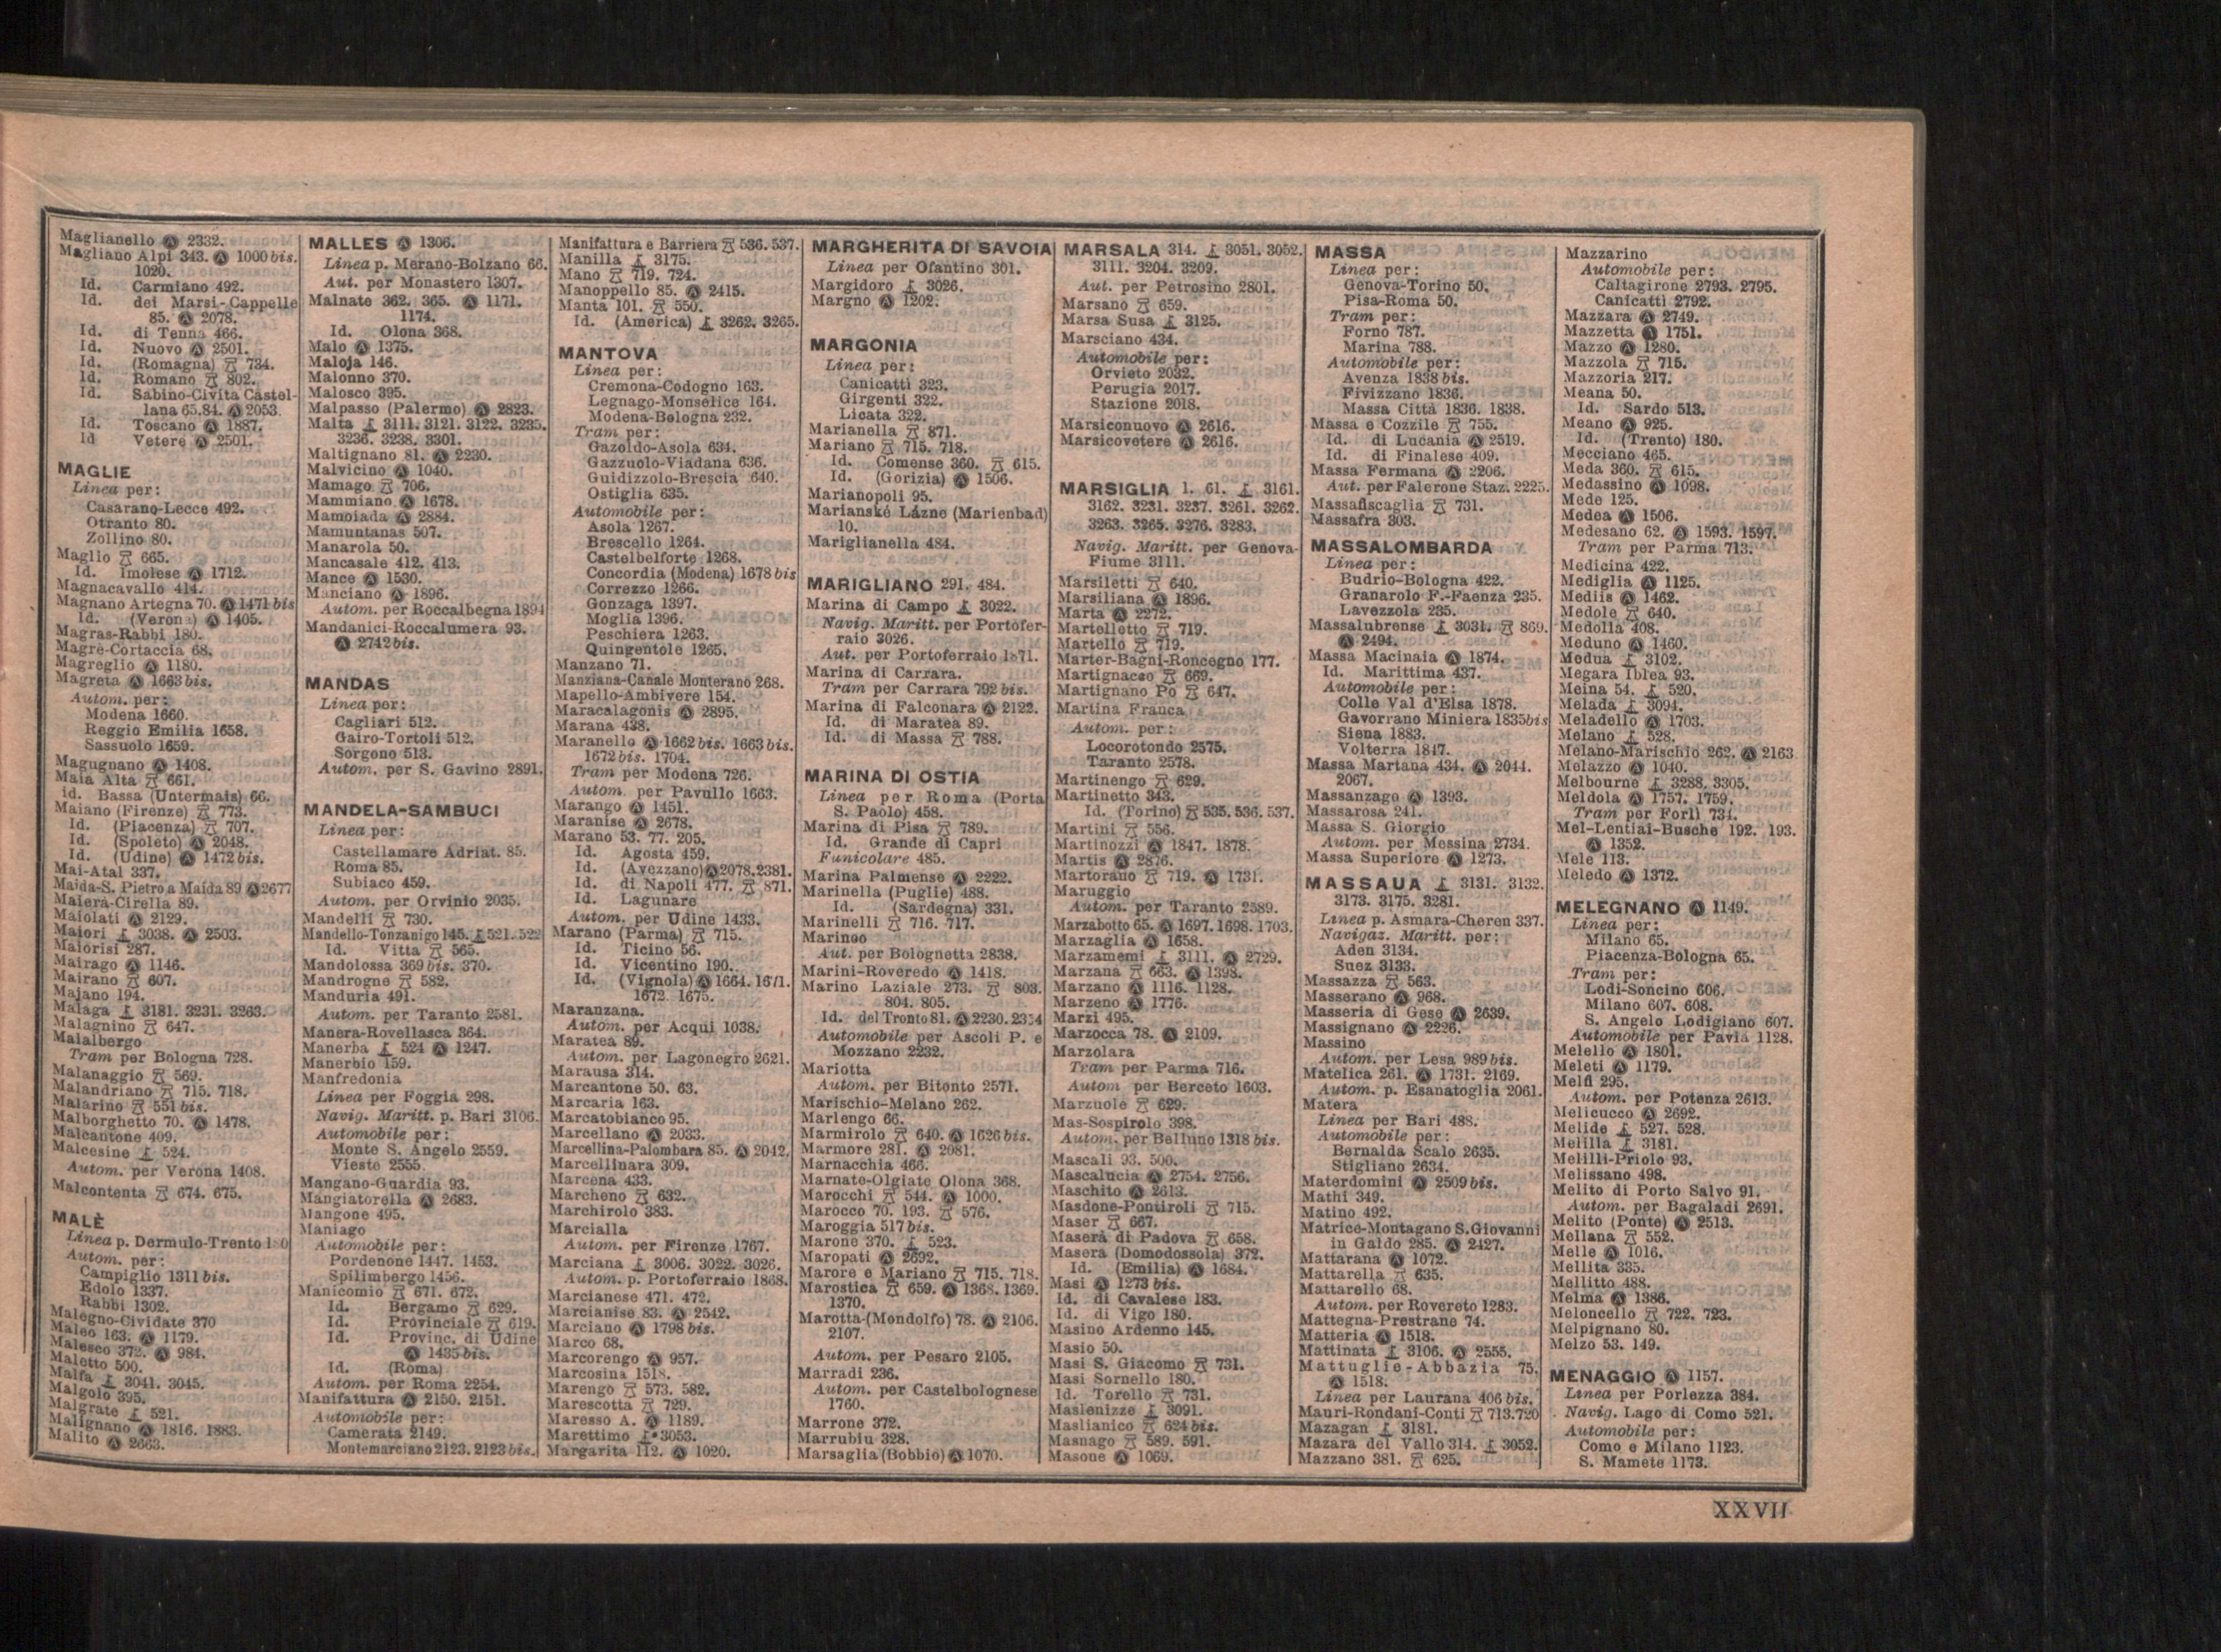 Maglianello Ⓐ 2332.
Magliano Alpi 343. Ⓐ 1000 bis.
1020.
Id. Carmiano 492.
Id. dei Marsi-Cappelle
85. Ⓐ 2078.
Id. di Tenna 466.
Id. Nuovo Ⓐ 2501.
Id. (Romagna) 734.
Id. Romano 802.
Id. Sabino-Civita Castel-
lana 65.84. Ⓐ 2053.
Id. Toscano Ⓐ 1887.
Id Vetere Ⓐ 2501.
MAGLIE
Linea per:
Casarano-Lecce 492.
Otranto 80.
Zollino 80.
Maglio 665.
Id. Imolese Ⓐ 1712.
Magnacavallo 414.
Magnano Artegna 70. Ⓐ 1471 bis
Id. (Verona) Ⓐ 1405.
Magras-Rabbi 180.
Magrè-Cortaccia 68.
Magreglio Ⓐ 1180.
Magreta Ⓐ 1663 bis.
Autom. per:
Modena 1660.
Reggio Emilia 1658.
Sassuolo 1659.
Magugnano Ⓐ 1408.
Maia Alta 661.
id. Bassa (Untermais) 66.
Maiano (Firenze) 773.
Id. (Piacenza) 707.
Id. (Spoleto) Ⓐ 2048.
Id. (Udine) Ⓐ 1472 bis.
Mai-Atal 337.
Maida-S. Pietro a Maida 89 Ⓐ 2677
Maierà-Cirella 89.
Maiolati Ⓐ 2129.
Maiori 3038. Ⓐ 2503.
Maiorisi 287.
Mairago Ⓐ 1146.
Mairano 607.
Majano 194.
Malaga 3181. 3231. 3263.
Malagnino 647.
Malalbergo
Tram per Bologna 728.
Malanaggio 569.
Malandriano 715. 718.
Malarino 551 bis.
Malborghetto 70. Ⓐ 1478.
Malcantone 409.
Malcesine 524.
Autom. per Verona 1408.
Malcontenta 674. 675.
MALÈ
Linea p. Dermulo-Trento
Autom. per:
Campiglio 1311 bis.
Edolo 1337.
Rabbi 1302.
Malegno-Cividate 370
Maleo 163. Ⓐ 1179.
Malesco 372. Ⓐ 984.
Maletto 500.
Malfa 3041. 3045.
Malgolo 395.
Malgrate 521.
Malignano Ⓐ 1816. 1883.
Malito Ⓐ 2663.
MALLES Ⓐ 1306.
Linea p. Merano-Bolzano 66.
Aut. per Monastero 1307.
Malnate 362. 365. Ⓐ 1171.
1174.
Id. Olona 368.
Malo Ⓐ 1375.
Maloja 146.
Malonno 370.
Malosco 395.
Malpasso (Palermo) Ⓐ 2823.
Malta 3111. 3121. 3122. 3235.
3236. 3238. 3301.
Maltignano 81. Ⓐ 2230.
Malvicino Ⓐ 1040.
Mamago 706.
Mammiano Ⓐ 1678.
Mamoiada Ⓐ 2884.
Mamuntanas 507.
Manarola 50.
Mancasale 412. 413.
Mance Ⓐ 1530.
Manciano Ⓐ 1896.
Autom. per Roccalbegna 1894
Mandanici-Roccalumera 93.
Ⓐ 2742 bis.
MANDAS
Linea per:
Cagliari 512.
Gairo-Tortolì 512.
Sorgono 513.
Autom. per S. Gavino 2891.
MANDELA-SAMBUCI
Linea per:
Castellamare Adriat. 85.
Roma 85.
Subiaco 459.
Autom. per Orvinio 2035.
Mandelli 730.
Mandello-Tonzanigo 145. 521. 522
Id. Vitta 565.
Mandolossa 369 bis. 370.
Mandrogne 582.
Manduria 491.
Autom. per Taranto 2581.
Manera-Rovellasca 364.
Manerba 524 Ⓐ 1247.
Manerbio 159.
Manfredonia
Linea per Foggia 298.
Navig. Maritt. p. Bari 3106.
Automobile per:
Monte S. Angelo 2559.
Vieste 2555.
Mangano-Guardia 93.
Mangiatorella Ⓐ 2683.
Mangone 495.
Maniago
Automobile per:
Pordenone 1447. 1453.
Spilimbergo 1456.
Manicomio 671. 672.
Id. Bergamo 629.
Id. Provinciale 619.
Id. Provinc. di Udine
Ⓐ 1435 bis.
Id. (Roma)
Autom. per Roma 2254.
Manifattura Ⓐ 2150. 2151.
Automobile per:
Camerata 2149.
Montemarciano 2123. 2123 bis.
Manifattura e Barriera 536. 537.
Manilla 3175.
Mano 719. 724.
Manoppello 85. Ⓐ 2415.
Manta 101. 550.
Id. (America) 3262. 3265.
MANTOVA
Linea per:
Cremona-Codogno 163.
Legnago-Monselice 164.
Modena-Bologna 232.
Tram per:
Gazoldo-Asola 634.
Gazzuolo-Viadana 636.
Guidizzolo-Brescia 640.
Ostiglia 635.
Automobile per:
Asola 1267.
Brescello 1264.
Castelbelforte 1268.
Concordia (Modena) 1678 bis
Correzzo 1266.
Gonzaga 1397.
Moglia 1396.
Peschiera 1263.
Quingentole 1265.
Manzano 71.
Manziana-Canale Monterano 268.
Mapello-Ambivere 154.
Maracalagonis Ⓐ 2895.
Marana 438.
Maranello Ⓐ 1662 bis. 1663 bis.
1672 bis. 1704.
Tram per Modena 726.
Autom. per Pavullo 1663.
Marango Ⓐ 1451.
Maranise Ⓐ 2678.
Marano 53. 77. 205.
Id. Agosta 459.
Id. (Avezzano) Ⓐ 2078. 2381.
Id. di Napoli 477. 871.
Id. Lagunare
Autom. per Udine 1433.
Marano (Parma) 715.
Id. Ticino 56.
Id. Vicentino 190.
Id. (Vignola) Ⓐ 1664. 1671.
1672. 1675.
Maranzana.
Autom. per Acqui 1038.
Maratea 89.
Autom. per Lagonegro 2621.
Marausa 314.
Marcantone 50. 63.
Marcaria 163.
Marcatobianco 95.
Marcellano Ⓐ 2033.
Marcellina-Palombara 85. Ⓐ 2042.
Marcellinara 309.
Marcena 433.
Marcheno 632.
Marchirolo 383.
Marcialla
Autom. per Firenze 1767.
Marciana 3006. 3022. 3026.
Autom. p. Portoferraio 1868.
Marcianese 471. 472.
Marcianise 83. Ⓐ 2542.
Marciano Ⓐ 1798 bis.
Marco 68.
Marcorengo Ⓐ 957.
Marcosina 1518.
Marengo 573. 582.
Marescotta 729.
Maresso A. Ⓐ 1189.
Marettimo 3053.
Margarita 112. Ⓐ 1020.
MARGHERITA DI SAVOIA
Linea per Ofantino 301.
Margidoro 3026.
Margno Ⓐ 1202.
MARGONIA
Linea per:
Canicattì 323.
Girgenti 322.
Licata 322.
Marianella 871.
Mariano 715. 718.
Id. Comense 360. 615.
Id. (Gorizia) Ⓐ 1506.
Marianopoli 95.
Marianské Lázne (Marienbad)
10.
Mariglianella 484.
MARIGLIANO 291. 484.
Marina di Campo 3022.
Navig. Maritt. per Portofer-
raio 3026.
Aut. per Portoferraio 1871.
Marina di Carrara.
Tram per Carrara 792 bis.
Marina di Falconara Ⓐ 2122.
Id. di Maratea 89.
Id. di Massa 788.
MARINA DI OSTIA
Linea per Roma (Porta
S. Paolo) 458.
Marina di Pisa 789.
Id. Grande di Capri
Funicolare 485.
Marina Palmense Ⓐ 2222.
Marinella (Puglie) 488.
Id. (Sardegna) 331.
Marinelli 716. 717.
Marineo
Aut. per Bolognetta 2838.
Marini-Roveredo Ⓐ 1418.
Marino Laziale 273. 803.
804. 805.
Id. del Tronto 81. Ⓐ 2230. 2334
Automobile per Ascoli P. e
Mozzano 2232.
Mariotta
Autom. per Bitonto 2571.
Marischio-Melano 262.
Marlengo 66.
Marmirolo 640. Ⓐ 1626 bis.
Marmore 281. Ⓐ 2081.
Marnacchia 466.
Marnate-Olgiate Olona 368.
Marocchi 544. Ⓐ 1000.
Marocco 70. 193. 576.
Maroggia 517 bis.
Marone 370. 523.
Maropati Ⓐ 2692.
Marore e Mariano 715. 718.
Marostica 659. Ⓐ 1368. 1369.
1370.
Marotta-(Mondolfo) 78. Ⓐ 2106.
2107.
Autom. per Pesaro 2105.
Marradi 236.
Autom. per Castelbolognese
1760.
Marrone 372.
Marrubiu 328.
Marsaglia (Bobbio) Ⓐ 1070.
MARSALA 314. 3051. 3052.
3111. 3204. 3209.
Aut. per Petrosino 2801.
Marsano 659.
Marsa Susa 3125.
Marsciano 434.
Automobile per:
Orvieto 2032.
Perugia 2017.
Stazione 2018.
Marsiconuovo Ⓐ 2616.
Marsicovetere Ⓐ 2616.
MARSIGLIA 1. 61. 3161.
3162. 3231. 3237. 3261. 3262.
3263. 3265. 3276. 3283.
Navig. Maritt. per Genova-
Fiume 3111.
Marsiletti 640.
Marsiliana Ⓐ 1896.
Marta Ⓐ 2272.
Martelletto 719.
Martello 719.
Marter-Bagni-Roncegno 177.
Martignacco 669.
Martignano Po 647.
Martina Franca
Autom. per:
Locorotondo 2575.
Taranto 2578.
Martinengo 629.
Martinetto 343.
Id. (Torino) 535. 536. 537.
Martini 556.
Martinozzi Ⓐ 1847. 1878.
Martis Ⓐ 2876.
Martorano 719. Ⓐ 1731.
Maruggio
Autom. per Taranto 2589.
Marzabotto 65. Ⓐ 1697. 1698. 1703.
Marzaglia Ⓐ 1658.
Marzamemi 3111. Ⓐ 2729.
Marzana 663. Ⓐ 1398.
Marzano Ⓐ 1116. 1128.
Marzeno Ⓐ 1776.
Marzi 495.
Marzocca 78. Ⓐ 2109.
Marzolara
Tram per Parma 716.
Autom per Berceto 1603.
Marzuole 629.
Mas-Sospirolo 398.
Autom. per Belluno 1318 bis.
Mascali 93. 500.
Mascalucia Ⓐ 2754. 2756.
Maschito Ⓐ 2613.
Masdone-Pontiroli 715.
Maser 667.
Maserà di Padova 658.
Masera (Domodossola) 372.
Id. (Emilia) Ⓐ 1684.
Masi Ⓐ 1273 bis.
Id. di Cavalese 183.
Id. di Vigo 180.
Masino Ardenno 145.
Masio 50.
Masi S. Giacomo 731.
Masi Sornello 180.
Id. Torello 731.
Maslenizze 3091.
Maslianico 624 bis.
Masnago 589. 591.
Masone Ⓐ 1069.
MASSA
Linea per:
Genova-Torino 50.
Pisa-Roma 50.
Tram per:
Forno 787.
Marina 788.
Automobile per:
Avenza 1838 bis.
Fivizzano 1836.
Massa Città 1836. 1838.
Massa e Cozzile 755.
Id. di Lucania Ⓐ 2519.
Id. di Finalese 409.
Massa Fermana Ⓐ 2206.
Aut. per Falerone Staz. 2225.
Massafiscaglia 731.
Massafra 303.
MASSALOMBARDA
Linea per:
Budrio-Bologna 422.
Granarolo F.-Faenza 235.
Lavezzola 235.
Massalubrense 3031. 869.
Ⓐ 2494.
Massa Macinaia Ⓐ 1874.
Id. Marittima 437.
Automobile per:
Colle Val d'Elsa 1878.
Gavorrano Miniera 1835 bis
Siena 1883.
Volterra 1847.
Massa Martana 434. Ⓐ 2044.
2067.
Massanzago Ⓐ 1393.
Massarosa 241.
Massa S. Giorgio
Autom. per Messina 2734.
Massa Superiore Ⓐ 1273.
MASSAUA 3131. 3132.
3173. 3175. 3281.
Linea p. Asmara-Cheren 337.
Navigaz. Maritt. per:
Aden 3134.
Suez 3133.
Massazza 563.
Masserano Ⓐ 968.
Masseria di Gese Ⓐ 2639.
Massignano Ⓐ 2226.
Massino
Autom. per Lesa 989 bis.
Matelica 261. Ⓐ 1731. 2169.
Autom. p. Esanatoglia 2061.
Matera
Linea per Bari 488.
Automobile per:
Bernalda Scalo 2635.
Stigliano 2634.
Materdomini Ⓐ 2509 bis.
Mathi 349.
Matino 492.
Matrice-Montagano S. Giovanni
in Galdo 285. Ⓐ 2427.
Mattarana Ⓐ 1072.
Mattarella 635.
Mattarello 68.
Autom. per Rovereto 1283.
Mattegna-Prestrane 74.
Matteria Ⓐ 1518.
Mattinata 3106. Ⓐ 2555.
Mattuglie-Abbazia 75.
Ⓐ 1518.
Linea per Laurana 406 bis.
Mauri-Rondani-Conti 713. 720
Mazagan 3181.
Mazara del Vallo 314. 3052.
Mazzano 381. 625.
Mazzarino
Automobile per:
Caltagirone 2793. 2795.
Canicattì 2792.
Mazzara Ⓐ 2749.
Mazzetta Ⓐ 1751.
Mazzo Ⓐ 1280.
Mazzola 715.
Mazzoria 217.
Meana 50.
Id. Sardo 513.
Meano Ⓐ 925.
Id. (Trento) 180.
Mecciano 465.
Meda 360. 615.
Medassino Ⓐ 1098.
Mede 125.
Medea Ⓐ 1506.
Medesano 62. Ⓐ 1593. 1597.
Tram per Parma 713.
Medicina 422.
Mediglia Ⓐ 1125.
Mediis Ⓐ 1462.
Medole 640.
Medolla 408.
Meduno Ⓐ 1460.
Medua 3102.
Megara Iblea 93.
Meina 54. 520.
Melada 3094.
Meladello Ⓐ 1703.
Melano 528.
Melano-Marischio 262. Ⓐ 2163
Melazzo Ⓐ 1040.
Melbourne 3288. 3305.
Meldola Ⓐ 1757. 1759.
Tram per Forlì 734.
Mel-Lentiai-Busche 192. 193.
Ⓐ 1352.
Mele 113.
Meledo Ⓐ 1372.
MELEGNANO Ⓐ 1149.
Linea per:
Milano 65.
Piacenza-Bologna 65.
Tram per:
Lodi-Soncino 606.
Milano 607. 608.
S. Angelo Lodigiano 607.
Automobile per Pavia 1128.
Melello Ⓐ 1801.
Meleti Ⓐ 1179.
Melfi 295.
Autom. per Potenza 2613.
Melicucco Ⓐ 2692.
Melide 527. 528.
Melilla 3181.
Melilli-Priolo 93.
Melissano 498.
Melito di Porto Salvo 91.
Autom. per Bagaladi 2691.
Melito (Ponte) Ⓐ 2513.
Mellana 552.
Melle Ⓐ 1016.
Mellita 335.
Mellitto 488.
Melma Ⓐ 1386.
Meloncello 722. 723.
Melpignano 80.
Melzo 53. 149.
MENAGGIO Ⓐ 1157.
Linea per Porlezza 384.
Navig. Lago di Como 521.
Automobile per:
Como e Milano 1123.
S. Mamete 1173.
XXVII